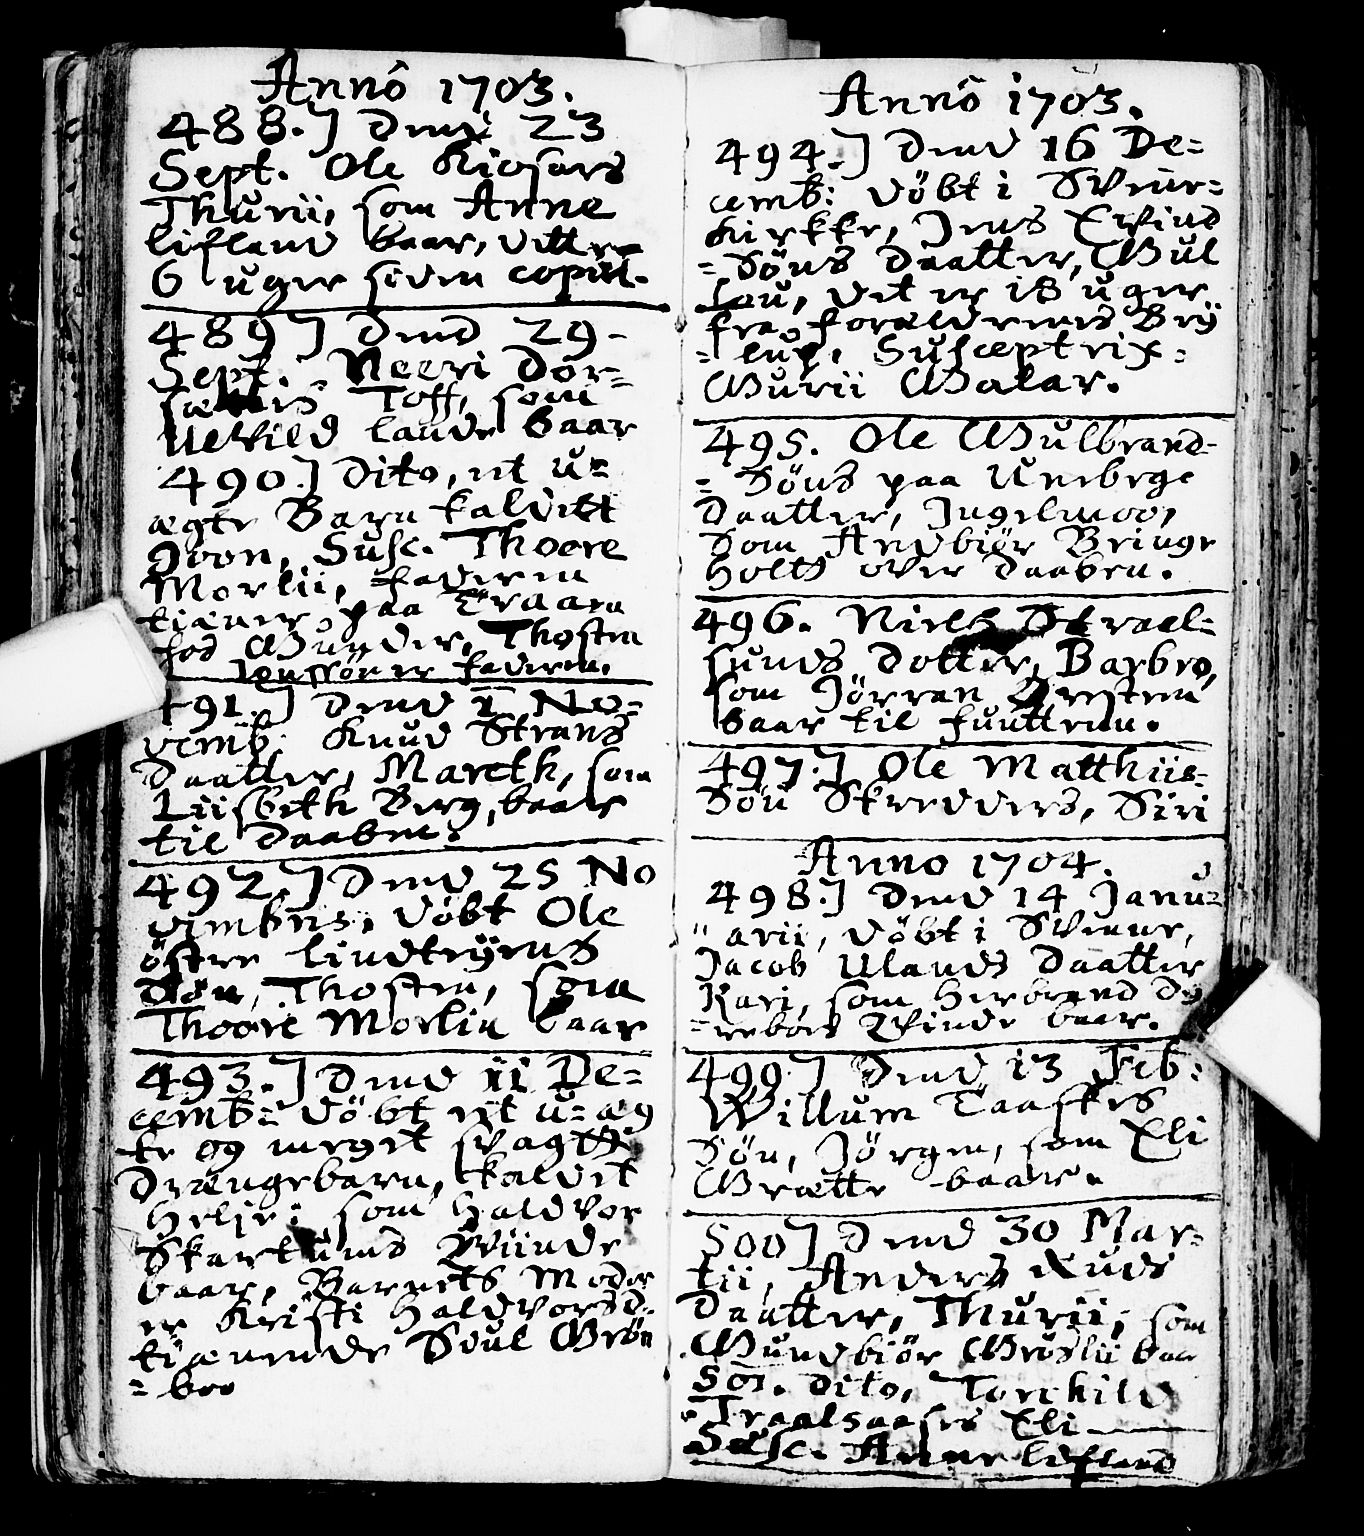 Annô 1703.
488.] Dend 23
Sept. Ole Kiosars
Thurii, som Anne
Lifland baar, dette er
6 uger siden copul.
489] Dend 29
Sept. Neeri Dor=
Toff, som
lande baar
490.] Dito, et u=
ægte Barn kaldett
Joon, Susc. Thoore
Morlii, faderen
tiæner paa
Gunder, Thosten
er faderen.
491.] Dend 1 No=
vemb: Knud Strans
Daatter, Mareth, som
Liisbeth Berg, baar
til Daaben.
492.] Dend 25 No
vembris, døbt Ole
östre Lindtejens
Søn, Thosten, som
Thoore Morlia baar
493.] Dend 11 De=
cemb: döbt et u=æg
te og meget svagtt
Drængebarn, kaldet
Helje: som Haldvor
Qviinde
baar, Barnets Moder
er Kristi Haldvorsd.
tiænende Soul Grön
= boe
Annô 1703.
494.] Dend 16 De=
cemb: döbt i
Kirkke, Jens Evind
= Söns Daatter, Gul
lou, det er 18 uger
fra forældrenes Brÿ
= lup. Susceptrix:
Gurii Galar.
495. Ole Gulbrand=
= Söns paa Uneberge
Daatter, Ingelmoo,
Som Andbiör Bringe
Holtt over Daaben.
496. Niels Straal=
sunds Dotter, Barbro,
som Jörran
baar til funtten.
497.] Ole Matthiis=
Sön Skredders, Siri
Anno 1704.
498.] Dend 14 Janu=
" arii, döbt i
Jacob Ulands Daatter
Kari, som Herbrand Dy
= rebörs Qvinde baar.
499] Dend 13 Feb:
Willum Taaskes
Sön, Jörgen, som Eli
Grætte baar.
500] Dend 30 Mar=
tii, Anders Ruds
Daatter, Thurii, som
Gundbiör baar
501. Dito, Torchild
Traalsaases Eli
Susc. Anne Lifland